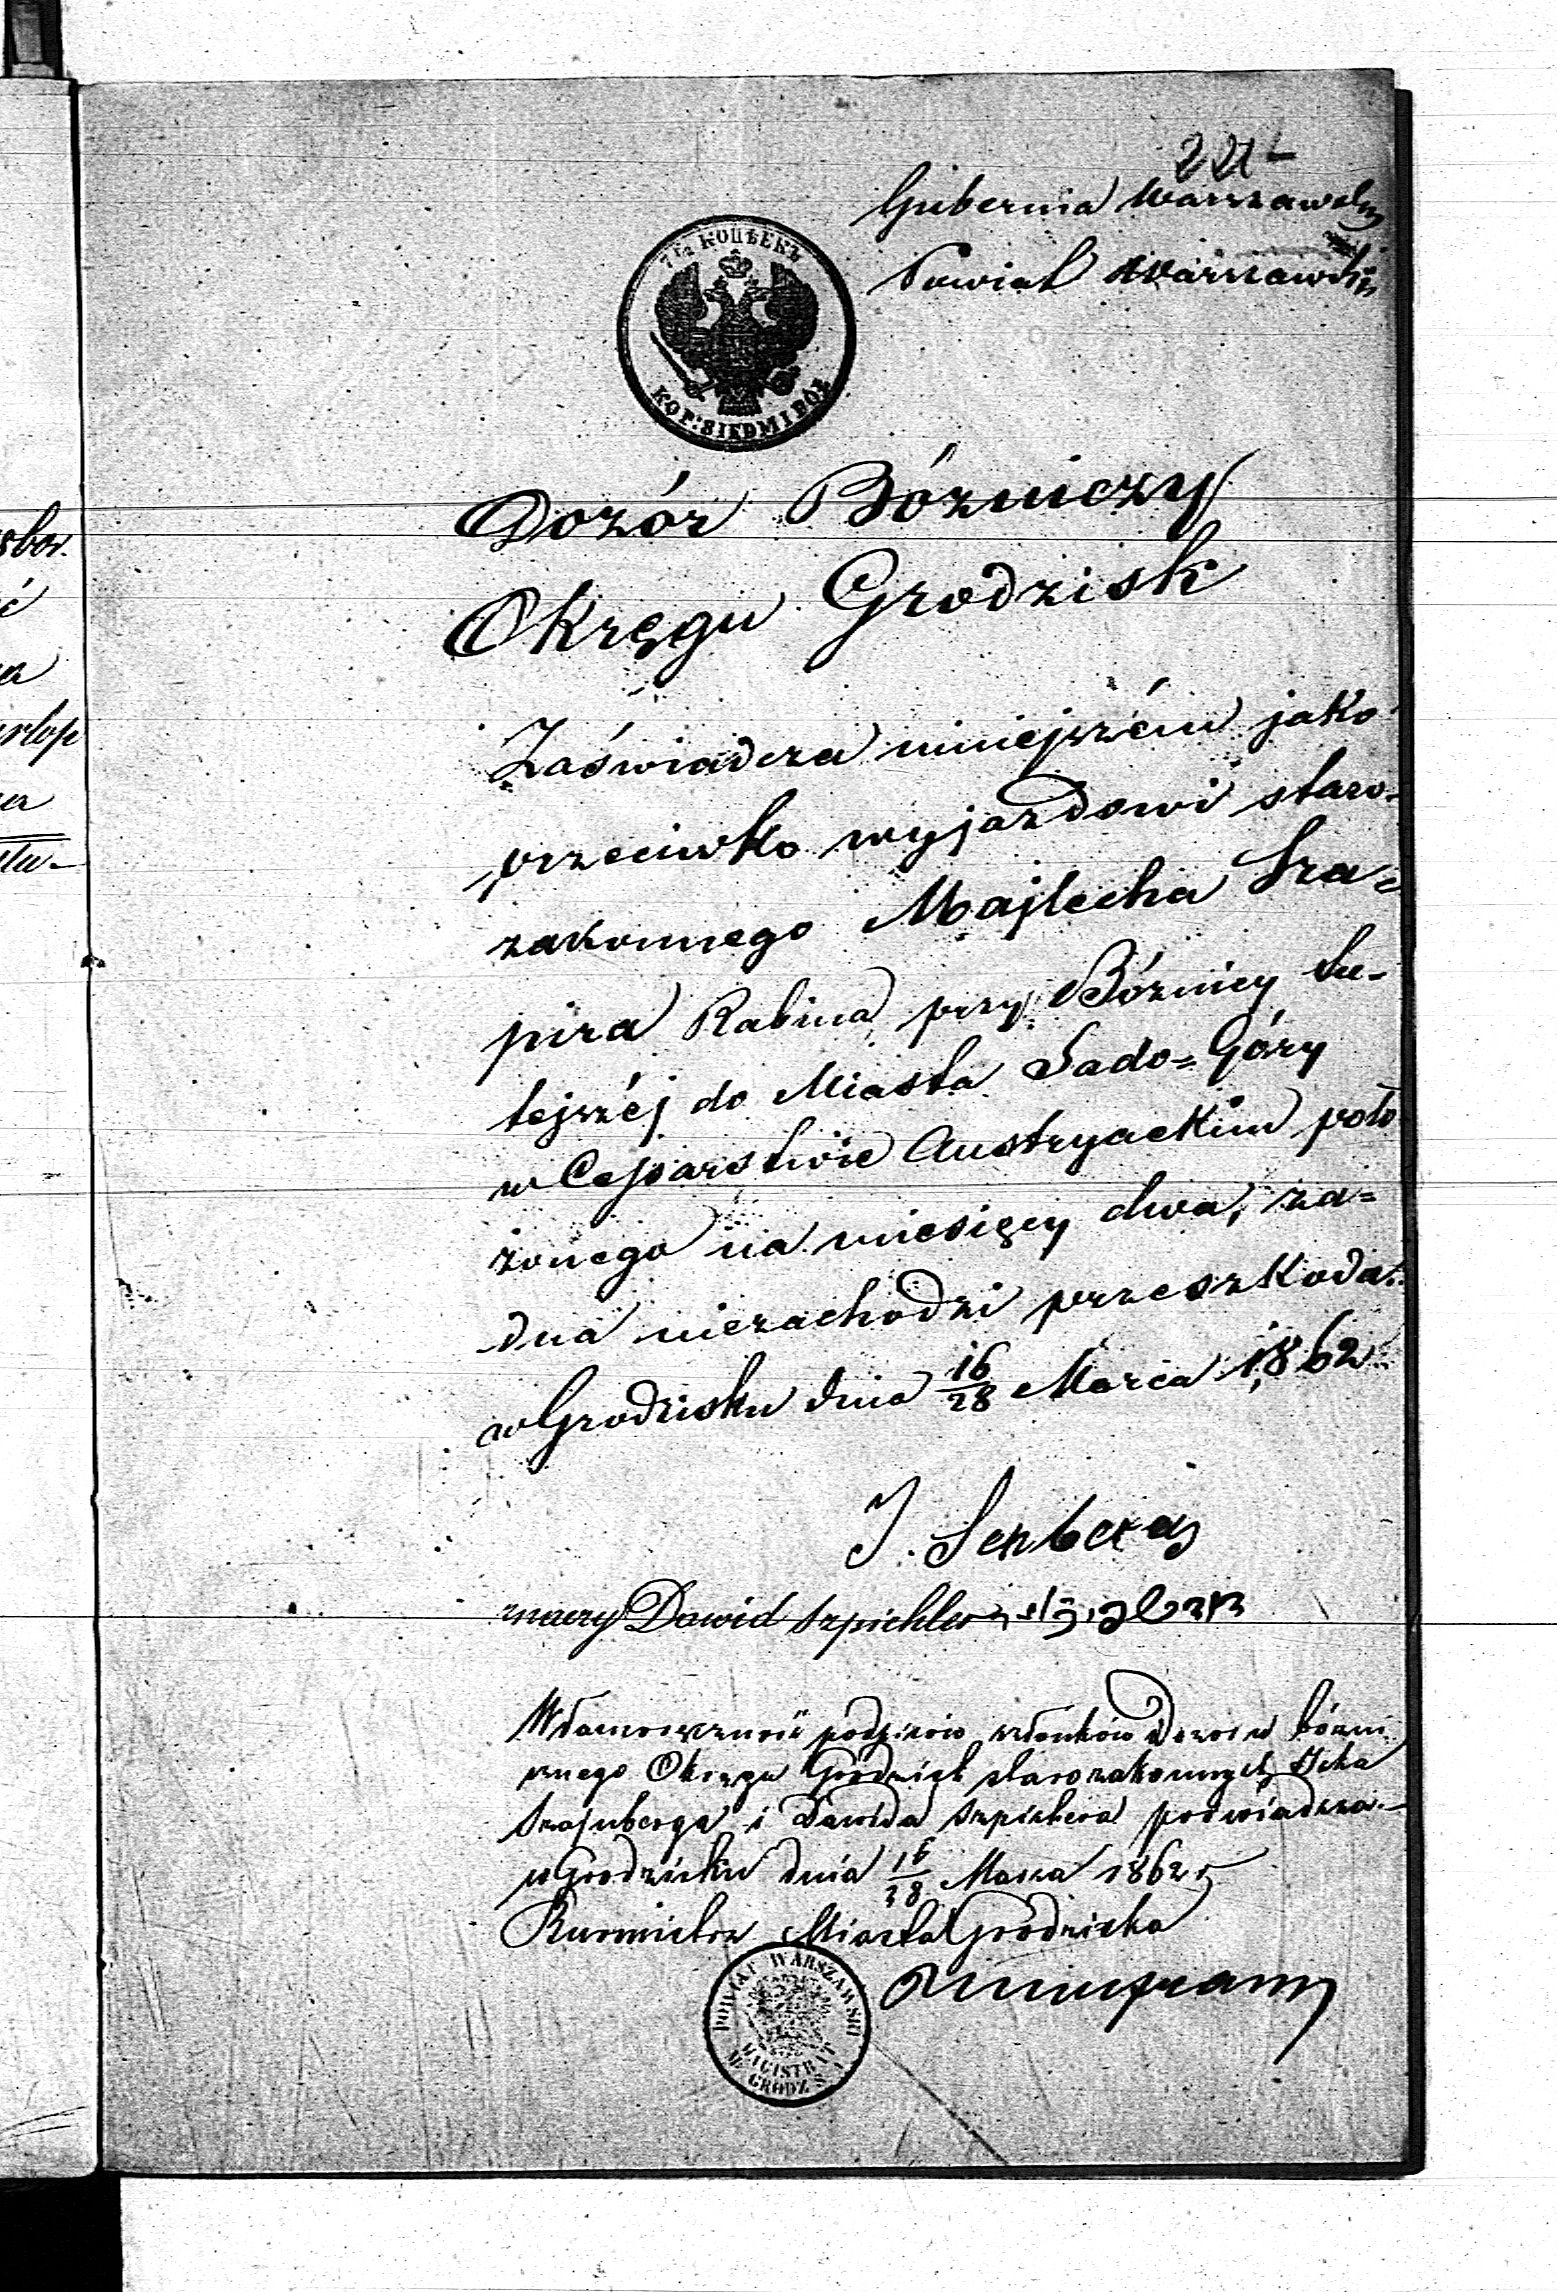 221
Gubernia Warszawska
Powiat Warszawski
7½ КОПѢЕКЪ
KOP: SIEDM I PÓŁ
Dozór Bózniczy
Okręgu Grodzisk
Zaświadcza niniejszém jako
przeciwko wyjazdowi staro-
zakonnego Majlecha Sza=
pira Rabina przy Bóznicy tu-
tejszéj do Miasta Sado=Góry
w Cesarstwie Austryackim poło
żonego na miesięcy dwa, ża=
dna niezachodzi przeszkoda.
w Grodzisku dnia 16/28 Marca 1862
J.
znaczy Dawid Szpichler
Własnoręczność podpisów członków Dozoru bózni
cznego Okręgu Grodzisk starozakonnych Icka
Szajnberga i Dawida Szpichlera poświadcza.
w Grodzisku dnia 16/28 Marca 1862 r
Burmistrz Miasta Grodziska
POWIAT WARSZAWSKI
MAGISTRAT
M. GRODZISKA